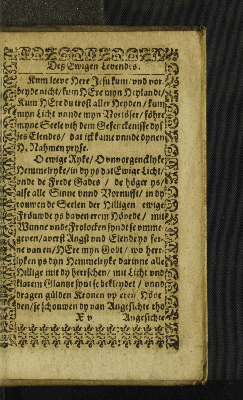 Deß Ewigen Levendes.
Kum leeve Here Jesu kum/ vnd vor
beyde nicht/ kum HEre myn Heylandt/
Kum HEre du trost aller Heyden/ kum
myn Licht vnnde myn Vorlöser/ föhre
myne Seele vth dem Gefencknisse dys
ses Elendes/ dat ick kame vnnde dynen
H. Nahmen pryse.
O ewige Ryke/ O vnvorgencklyke
Hemmelryke/ in dy ys dat Ewige Licht/
vnde de Frede Gades / de höger ys/
alse alle Sinne vnnd Vornufft/ in dy
rouwen de Seelen der Hilligen ewige
Fröuwde ys baven erem Hövede/ mit
Wunne vnde Frolocken synt se vmme
geven/ averst Angst vnd Elende ys fer
ne van en/ HEre myn Godt/ wo herr
lyken ys dyn Hemmelryke darinne alle
Hillige mit dy herrschen/ mit Licht vnd
klarem Glantze synt se bekleydet/ vnnd
dragen gülden Kronen vp eren Höve
den/ se schouwen dy van Angesichte tho
X v Angesichte